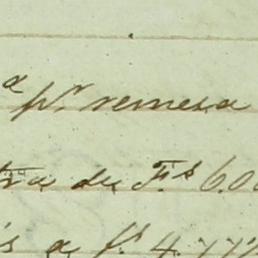 a pr. remesa
tra de F.s 6.00
s a f.s 4.777